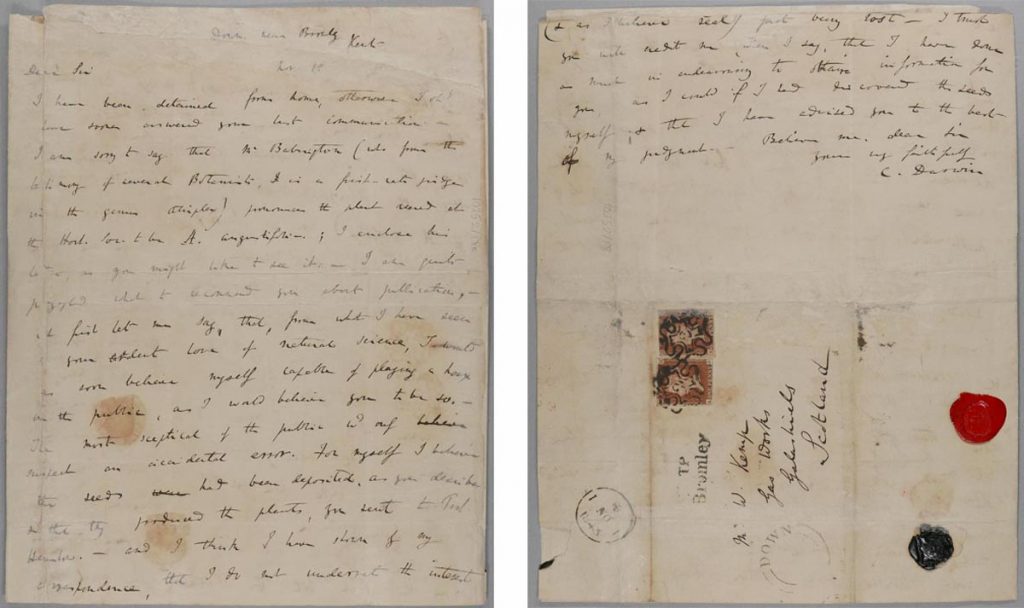 Down near Bromley
Kent
Nov. 1st
Dear Sir
I have been detained from home, otherwise I shd
have sooner answered your last communication. —
I am sorry to say that Mr Babington (who from the
testimony of several Botanists, is a first-rate judge
in the genus Atriplex) pronounces the plant reared at
the Hort. Soc. to be A. angustifolia. ; I enclose his
letter, as you might like to see it. — I am greatly
puzzled what to recommend you about publication, —
at first let me say, that, from what I have seen
your ardent love of natural science, I would
as soon believe myself capable of playing a hoax
on the public, as I would believe you to be so. —
The most sceptical of the public wd only
suspect an accidental error. For myself I believe
the seeds had been deposited, as you describe
& that they produced the plants, you sent to Prof
Henslow. — and I think I have shown by my
correspondence, that I do not underrate the interest
(& as I believe really just being lost — I trust
you will credit me when I say, that I have done
as much in endeavouring to obtain information for
you, as I could if I had discovered the seeds
myself, & that I have advised you to the best
of my judgment. — Believe me, dear Sir
yours very faithfully
C. Darwin
Mr W Kemp
Gas Works
Galashiels
Scotland
TP
Bromley